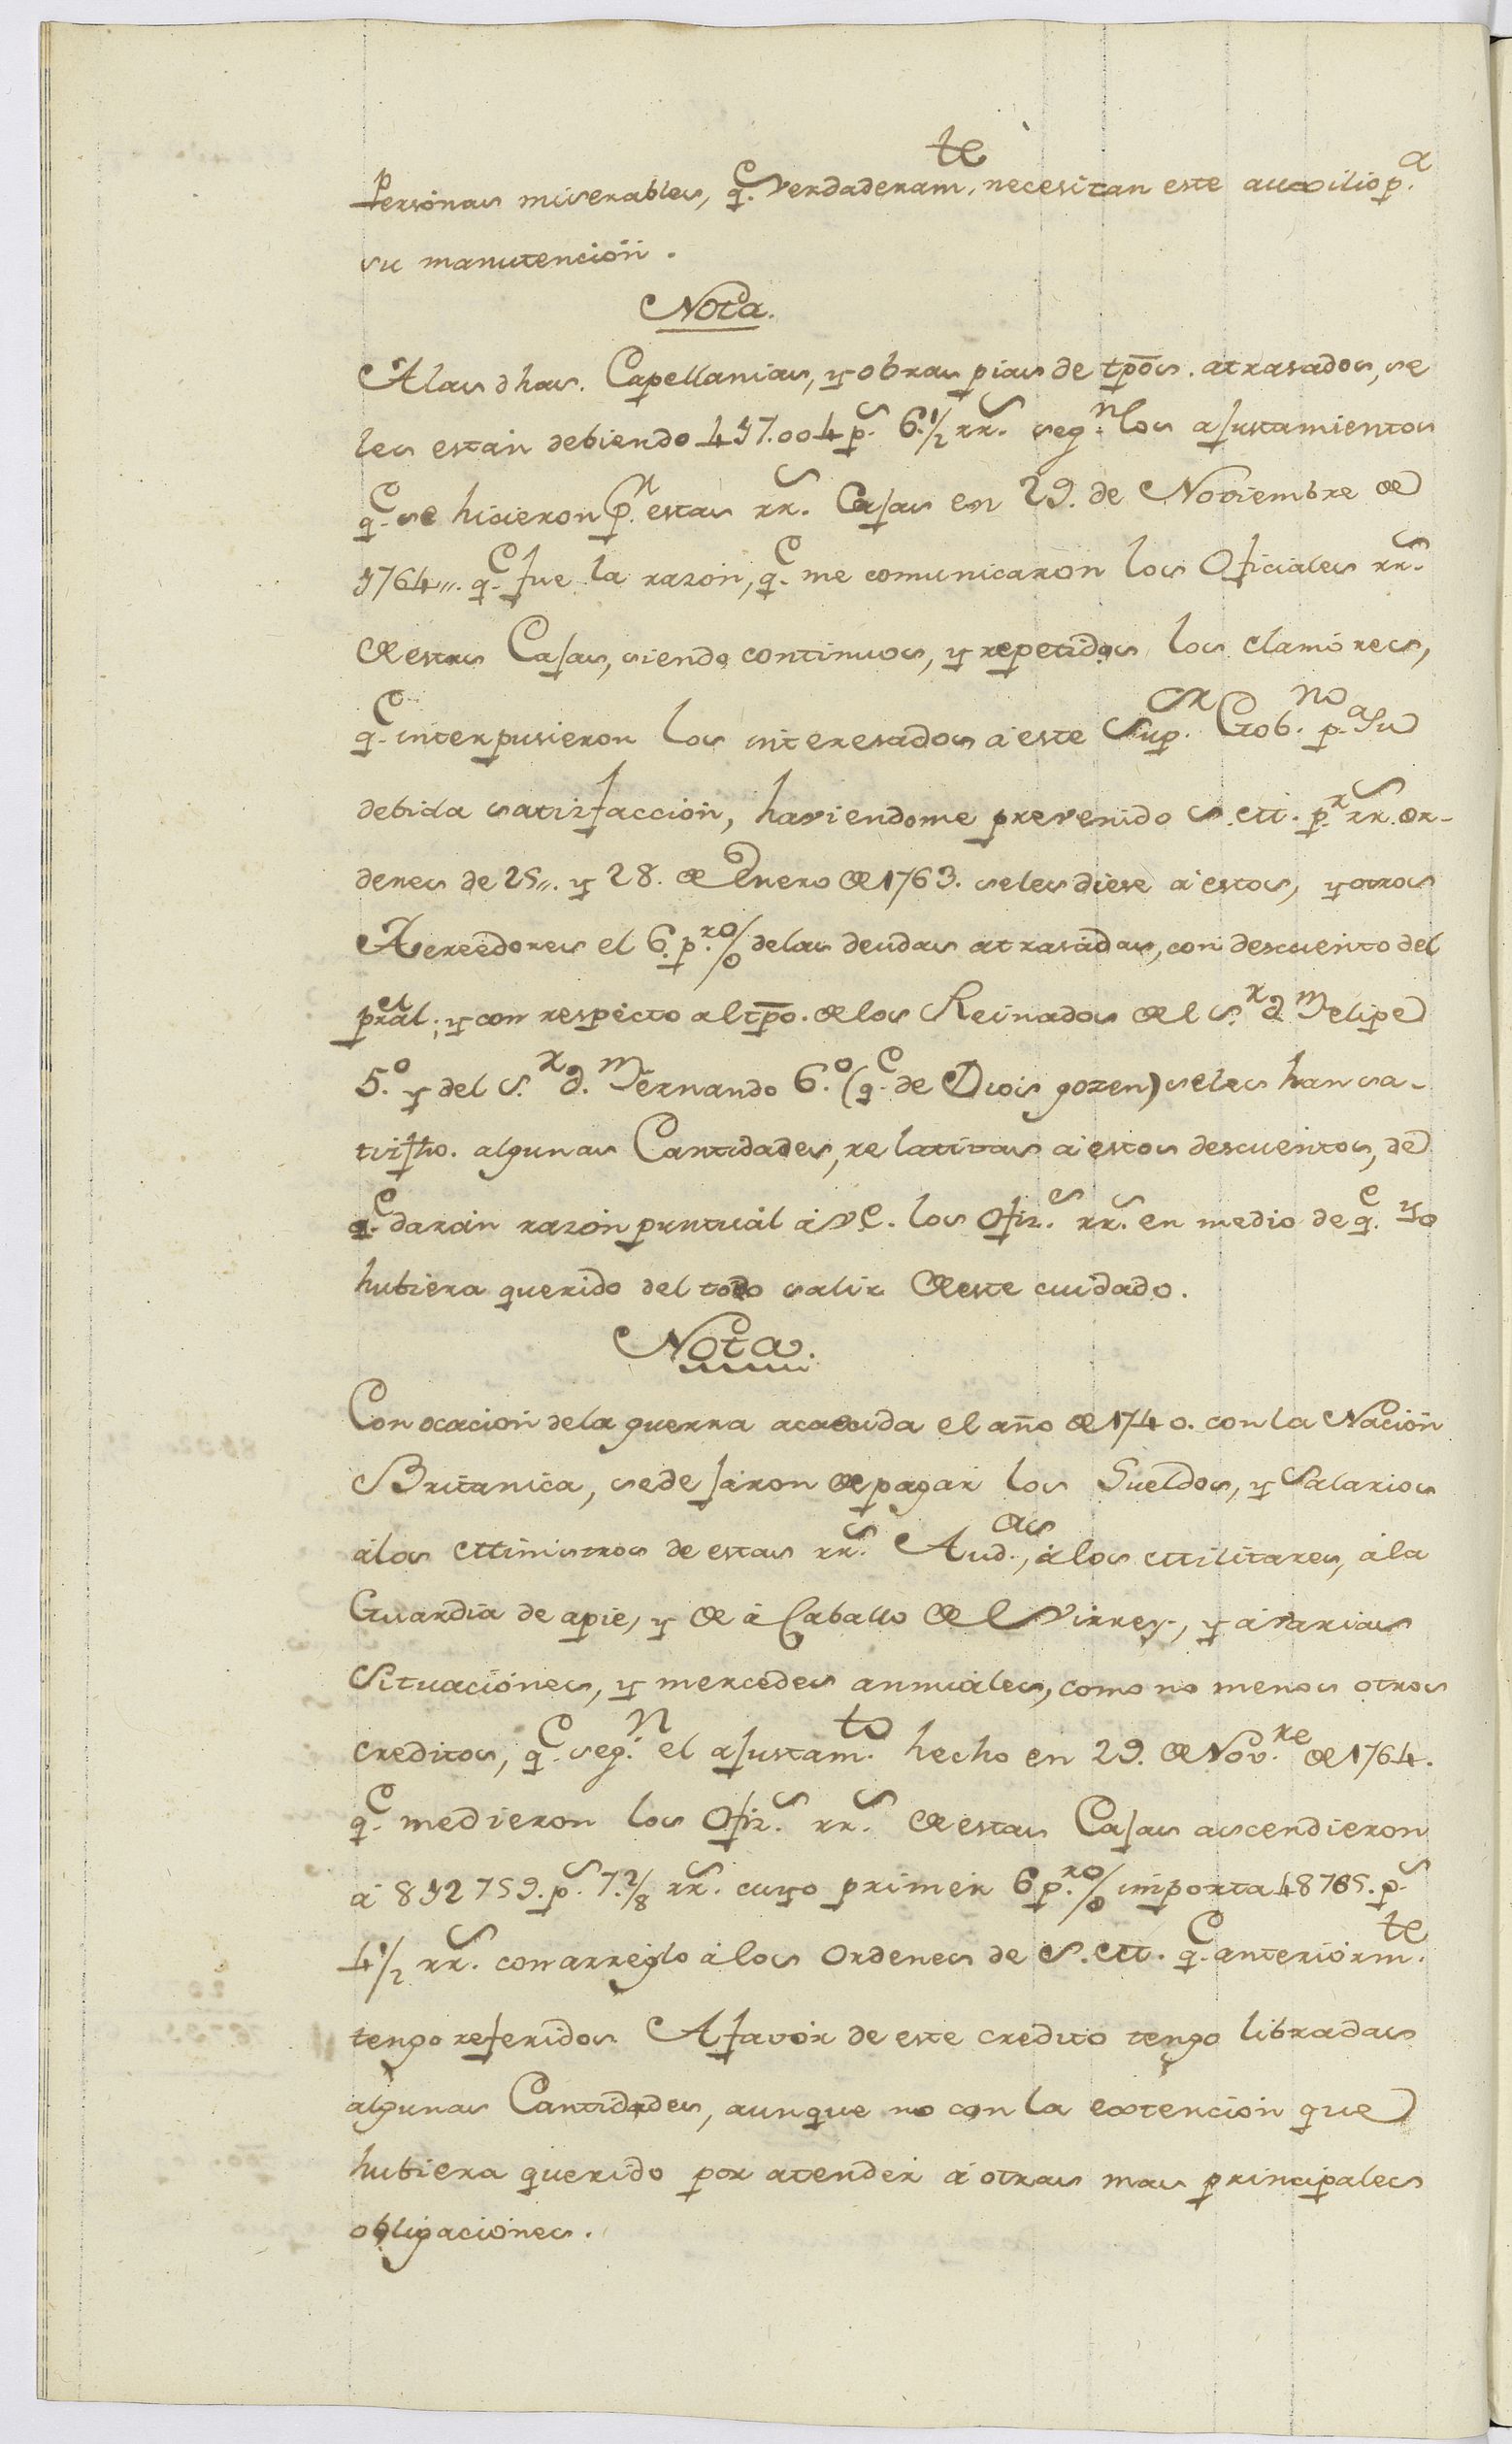 Personas miserables, q.e verdaderam.te necesitan este auxilio p.a
su manutención.
Nota.
A las dhas. Capellanias, y obras pias de tpōs. atrasados, se
les están debiendo 417.004 p.s 6.1/2 rr.s seg.n los ajustamientos
q.e se hicieron p.n estas rr.s Cajas en 29. de Noviembre de
1764,,. q.e fue la razon, q.e me comunicaron los Oficiales rr.s
de estas Cajas, siendo continuos, y repetidos los clamores,
q.e interpusieron los interesados á este Sup.or Gob.no p.a su
debida satisfacción, haviendome prevenido S. M. p.r rr.s Or-
denes de 25,,. y 28. de Enero de 1763. se les diese á estos, y otros
Acreedores el 6. p.ro % de las deudas atrasadas, con descuento del
pral; y con respecto al tpō. de los Reinados de el S.r d.n Felipe
5.o y del S.r d.n Fernando 6.o (q.e de Dios gozen) se les han sa-
tisfho. algunas Cantidades, relativas á estos descuentos, de
q.e darán razon puntuál á VE. los Ofiz.es rr.s en medio de q.e yo
hubiera querido del todo salir de este cuidado.
Nota.
Con ocacion de la guerra acaecida el año de 1740. con la Nación
Britanica, se dejaron de pagar los Sueldos, y Salarios
á los Ministros de estas rr.s Aud.as, á los Militares, á la
Guardia de apie, y de á Caballo de el Virrey, y á varias
Situaciónes, y mercedes annuáles, como no menos otros
creditos, q.e seg.n el ajustam.to hecho en 29. de Nov.re de 1764.
q.e me dieron los Ofiz.s rr.s de estas Cajas ascendieron
á 812759. p.s 7.2/8 rr.s cuyo primer 6 p.ro % importa 48765. p.s
4 1/2 rr.s con arreglo á los Ordenes de S. M. q.e anteriórm.te
tengo referidos. A favór de este credito tengo libradas
algunas Cantidades, aunque no con la extención que
hubiera querido por atender á otras mas principales
obligaciónes.